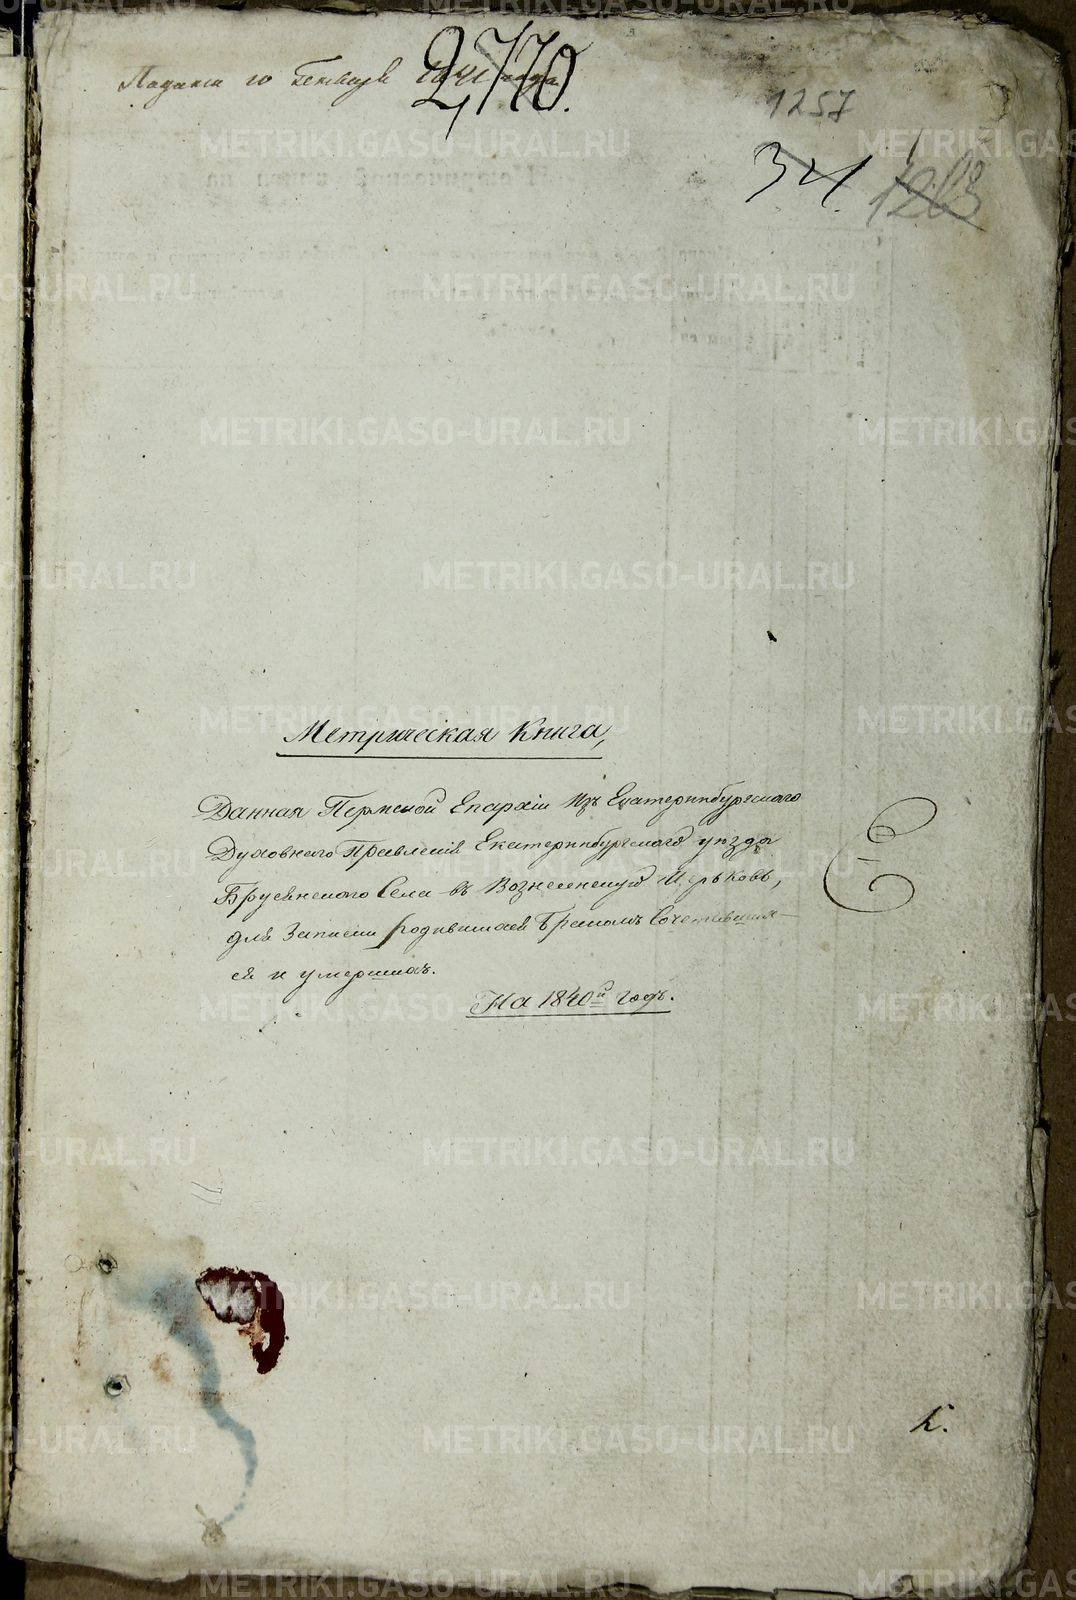 Подана 10 Генваря 1841 года
2,770.
1257
34. 1263
Метрическая Книга,
Данная Пермской Епархіи изъ Екатеринбургскаго
Духовнаго Правленія Екатеринбургскаго уѣзда
Брусянскаго Села въ Вознесенскую Церьковь,
для Записки родившихся Бракомъ Сочетавших-
ся и умершихъ.
На 1840й годъ.
К.